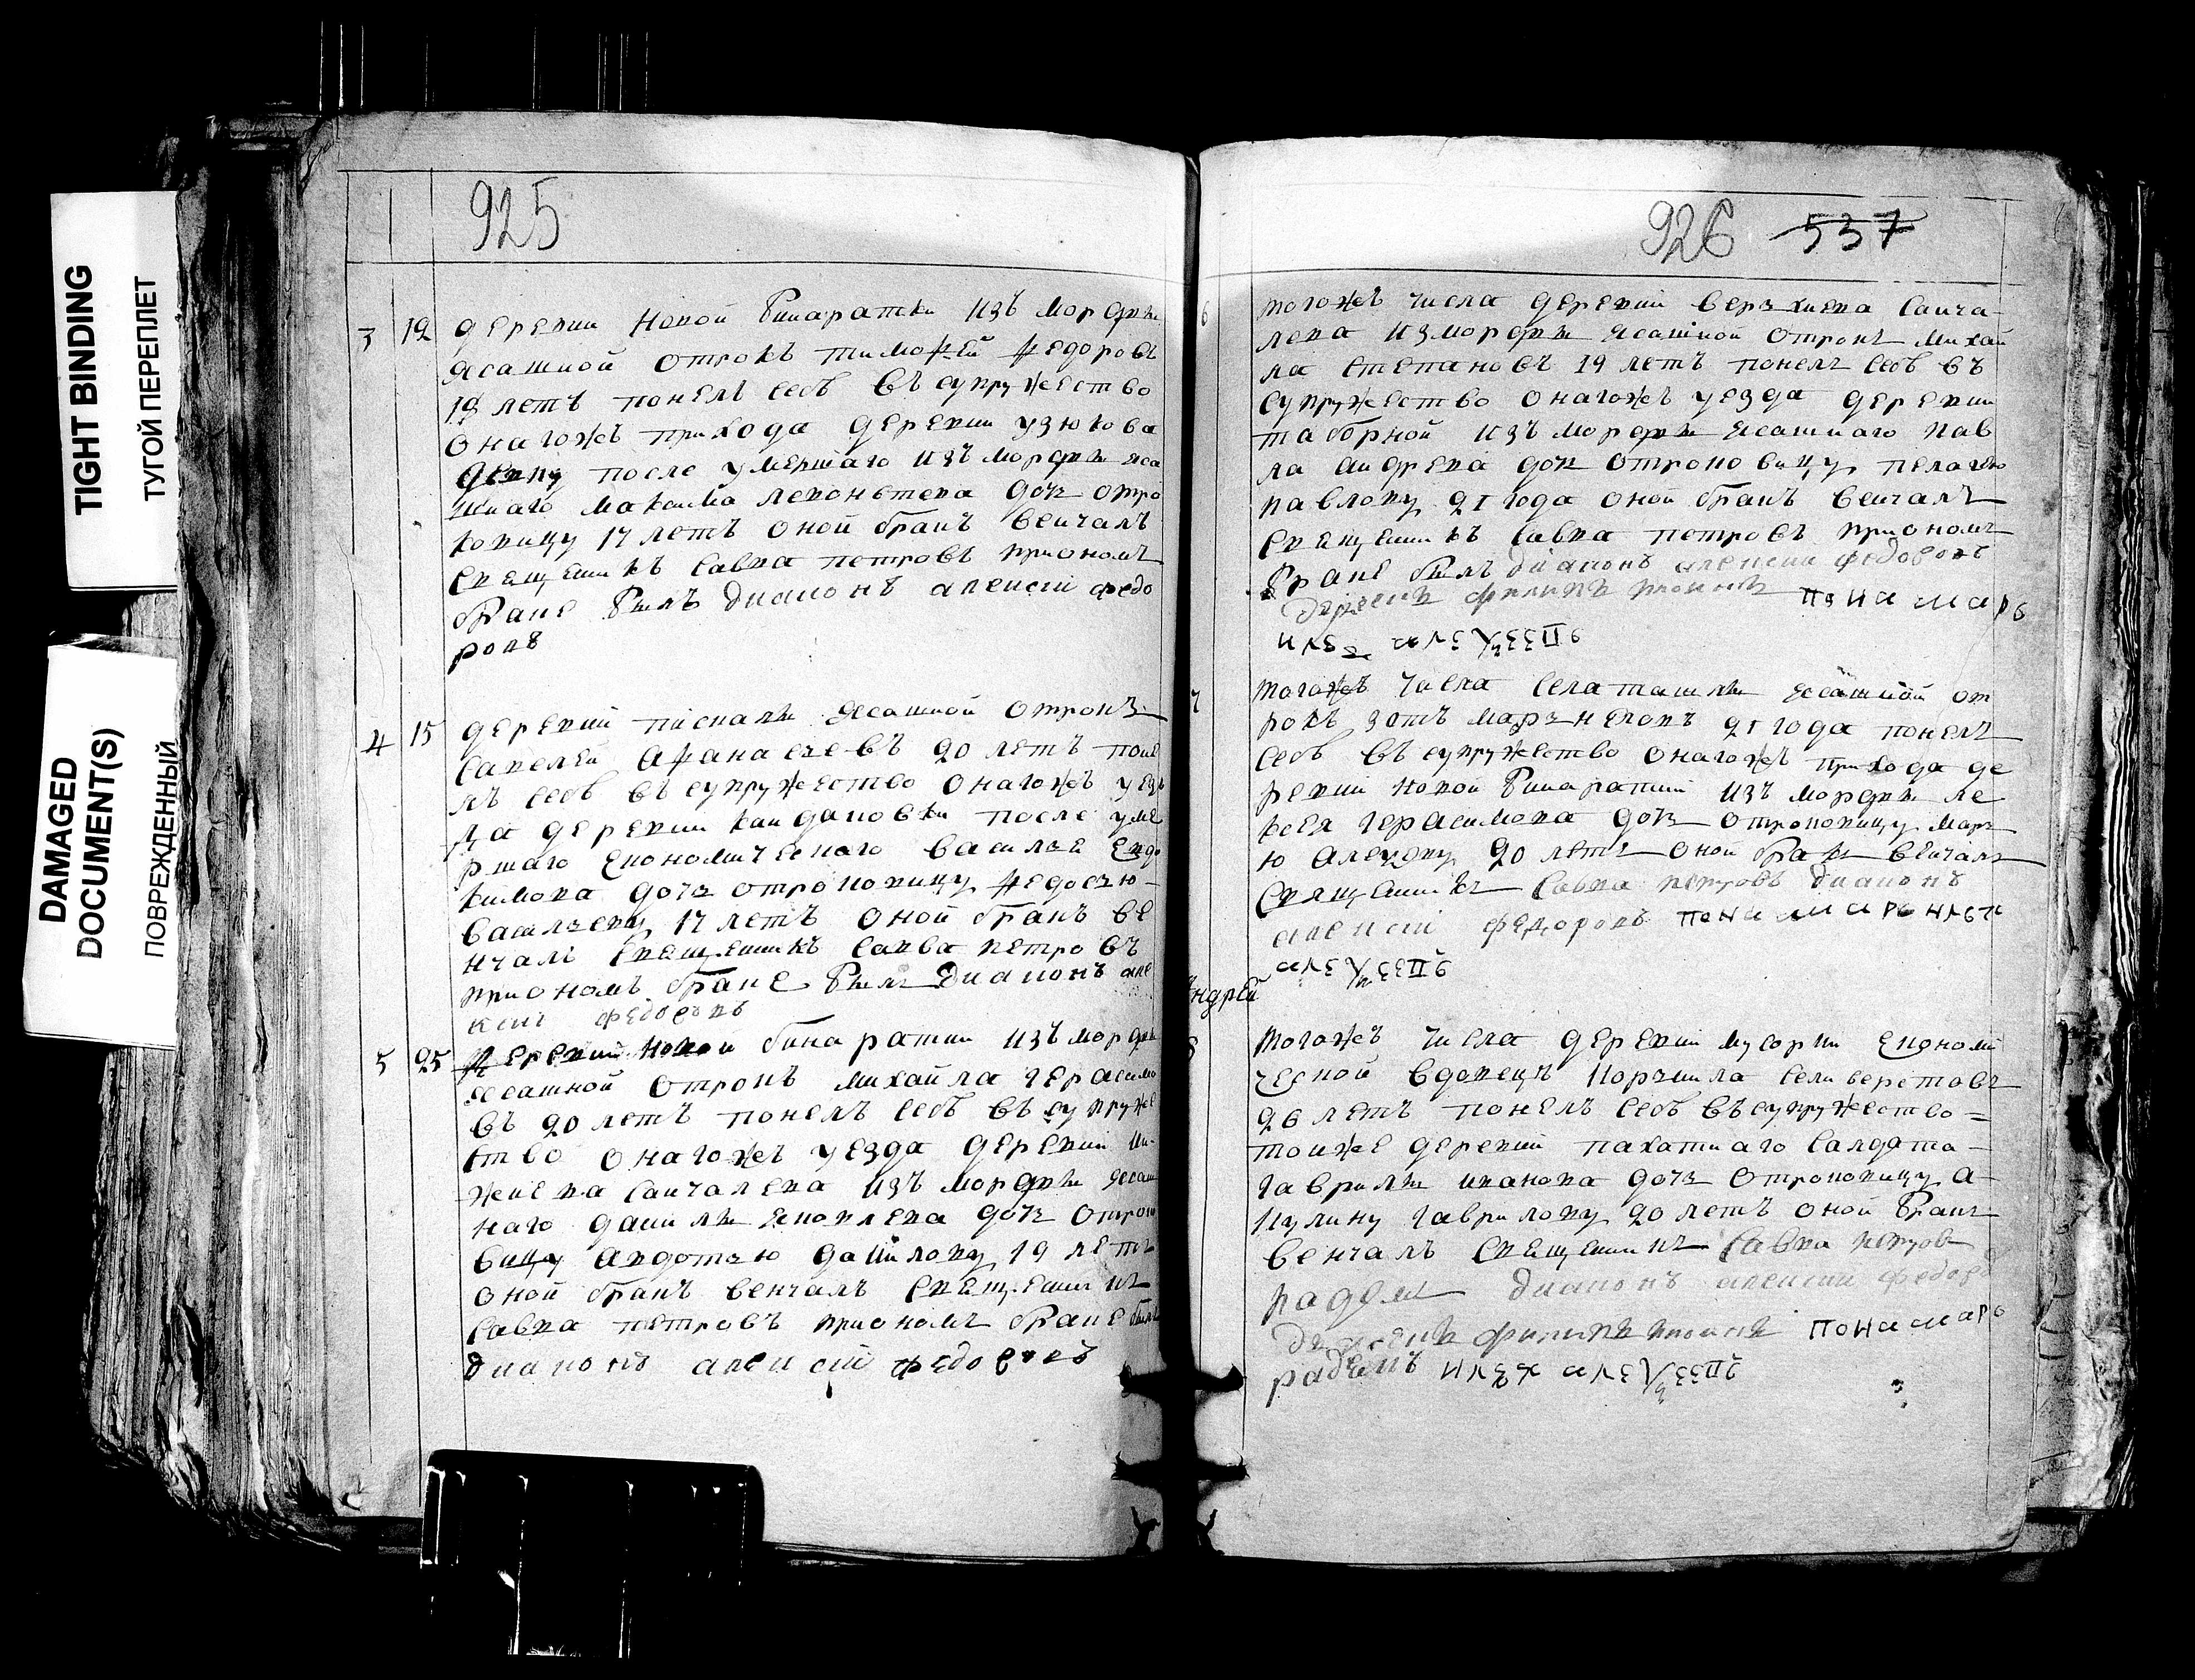 TIGHT BINDING
ТУГОЙ ПЕРЕПЛЕТ
DAMAGED
DOCUMENT(S)
ПОВРЕЖДЕННЫЙ
925
3 12 деревни новой бинаратки изъ мордвы
ясашной отрокъ тимофей федоровъ
19 летъ понелъ себѣ въ супружество
онагожъ прихода деревни узюкова
девку после умершаго изъ мордвы яса
шнаго максима леконьтева дочь отро
ковицу 17 летъ оной бракъ венчалъ
священникъ савва петровъ приономъ
браке былъ диаконъ алексий федо
ровъ
4 15 деревни пискалы ясашной отрокъ
савелей афанасьевъ 20 летъ поне
лъ себѣ въ супружество онагожъ уез
да деревни кандаковки после уме
ршаго економическаго василья евдо
кимова дочь отроковицу федосью
васильеву 17 летъ оной бракъ ве
нчалъ священникъ савва петровъ
приономъ браке былъ диаконъ але
ксий федоровъ
5 25 деревни новой бинаратки изъ мордвы
ясашной отрокъ михайла герасимо
въ 20 летъ понелъ себѣ въ супруже
ство онагожъ уезда деревни ни
жнева санчалева изъ мордвы ясаш
наго данилы яковлева дочь отроко
вицу авдотью данилову 19 летъ
оной бракъ венчалъ священникъ
савва петровъ приономъ браке былъ
диаконъ алексий федоровъ
926 537
6 тогожъ числа деревни верхнева санча
лева измордвы ясашной отрокъ михай
ла степановъ 19 летъ понелъ себѣ въ
супружество онагожъ уезда деревни
таборной изъ мордвы ясашнаго пав
ла андрева дочь отроковицу пелагею
павлову 21 года оной бракъ венчалъ
священникъ савва петровъ приономъ
браке былъ диаконъ алексии федоровъ
филипъ понамарь
7 тогожъ числа села ташлы ясашной от
рокъ зотъ маркеловъ 21 года понелъ
себѣ въ супружество онагожъ прихода де
ревни новой бинаратки изъ мордвы ле
герасимова дочь отроковицу марь
ю алексеву 20 летъ оной бракъ венчалъ
священникъ савва петровъ диаконъ
алексий федоровъ понамарь
Андрей
8 тогожъ числа деревни мусорки економи
ческой вдовецъ корънила селиверстовъ
26 летъ понелъ себѣ въ супружество
тоиже деревни пахатнаго салдата
гаврилы иванова дочь отроковицу а
кулину гаврилову 20 летъ оной бракъ
венчалъ священникъ савва петровъ
радѣлъ диаконъ алексии федоровъ
филипъ понамарь
радѣлъ